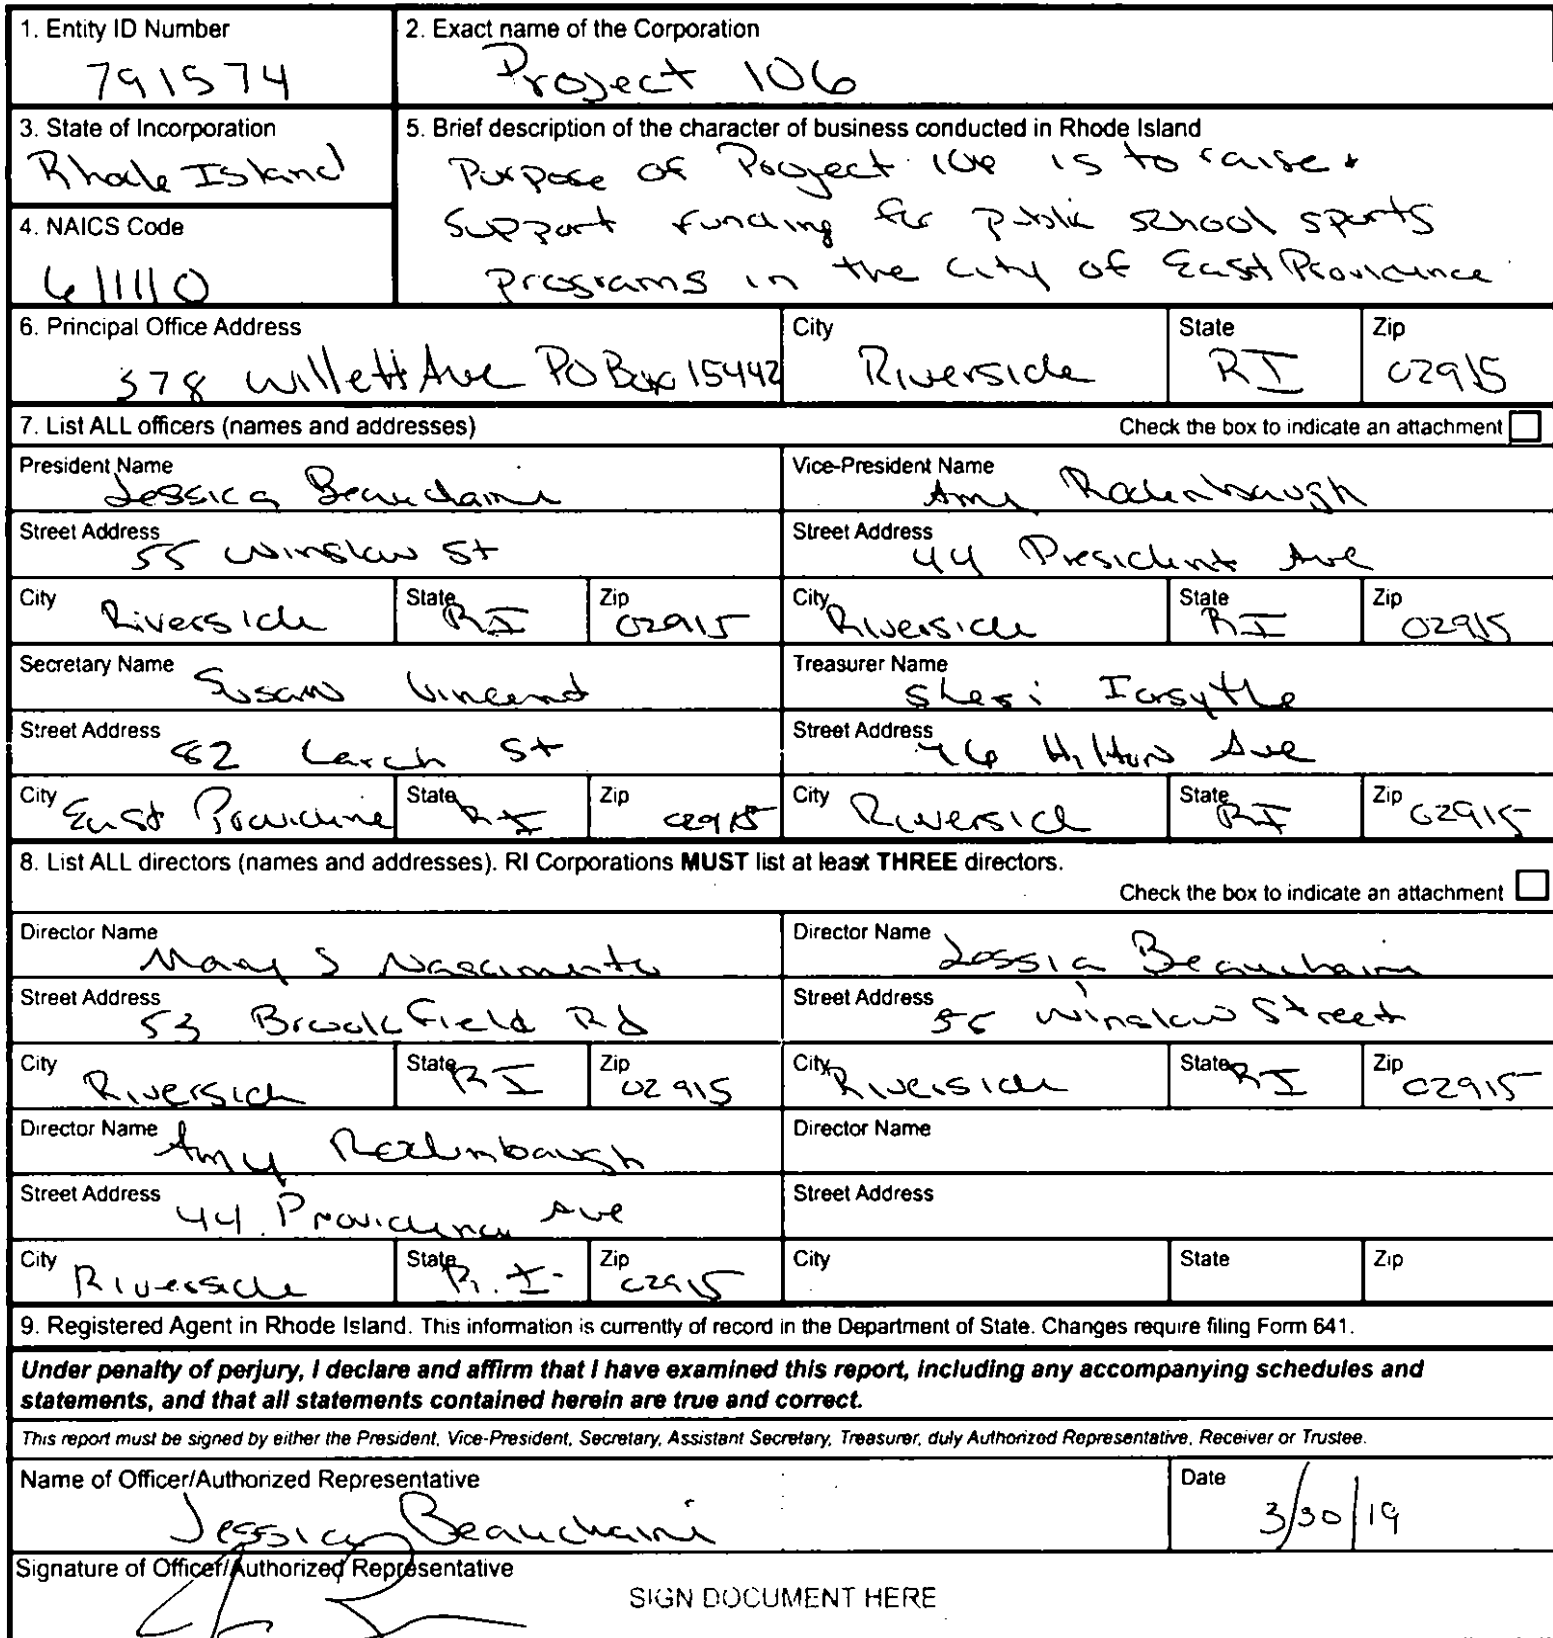 1. Entity ID Number
791574
2. Exact name of the Corporation
Project 106
3. State of Incorporation
Rhode Island
4. NAICS Code
611110
5. Brief description of the character of business conducted in Rhode Island
Purpose of Project 106 is to raise +
Support funding for public school sports
programs in the City of East Providence
6. Principal Office Address
378 Willett Ave PO Box 15442
City
Riverside
State
RI
Zip
02915
7. List ALL officers (names and addresses)
Check the box to indicate an attachment
President Name
Jessica Beauchaine
Vice-President Name
Amy Rodenbaugh
Street Address
55 Winslow St
Street Address
44 President Ave
City
Riverside
State
RI
Zip
02915
City
Riverside
State
RI
Zip
02915
Secretary Name
Susan Vincent
Treasurer Name
Sheri Forsythe
Street Address
82 Larch St
Street Address
46 Hilton Ave
City
East Providence
State
RI
Zip
02915
City
Riverside
State
RI
Zip
02915
8. List ALL directors (names and addresses). RI Corporations MUST list at least THREE directors.
Check the box to indicate an attachment
Director Name
Mary S Nascimento
Director Name
Jessica Beauchaine
Street Address
53 Brookfield Rd
Street Address
55 Winslow Street
City
Riverside
State
RI
Zip
02915
City
Riverside
State
RI
Zip
02915
Director Name
Amy Rodenbaugh
Director Name
Street Address
44 Providence Ave
Street Address
City
Riverside
State
R.I.
Zip
02915
City
State
Zip
9. Registered Agent in Rhode Island. This information is currently of record in the Department of State. Changes require filing Form 641.
Under penalty of perjury, I declare and affirm that I have examined this report, including any accompanying schedules and
statements, and that all statements contained herein are true and correct.
This report must be signed by either the President, Vice-President, Secretary, Assistant Secretary, Treasurer, duly Authorized Representative, Receiver or Trustee.
Name of Officer/Authorized Representative
Jessica Beauchaine
Date
3/30/19
Signature of Officer/Authorized Representative
SIGN DOCUMENT HERE